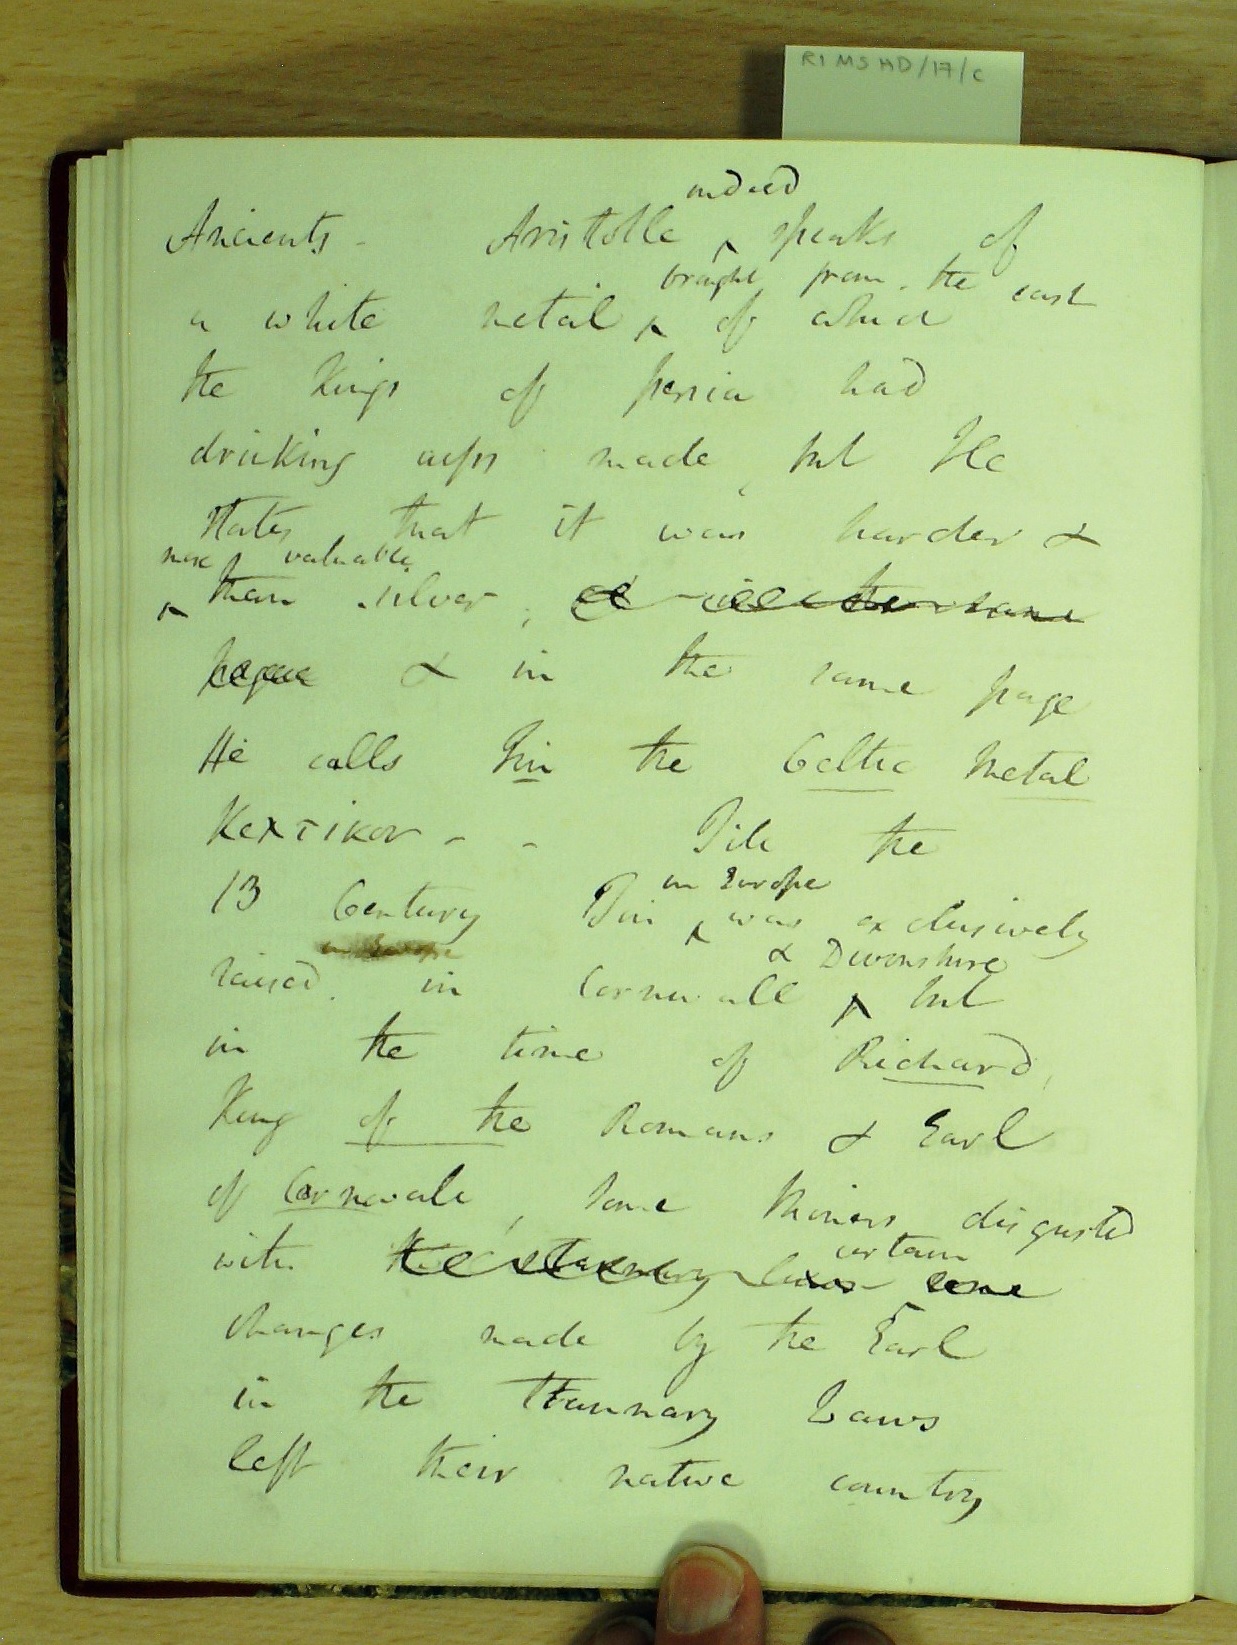 RI MS HD/17/C
indeed
Ancients - Aristotle ^ speaks of
brought from the east
a white metal ^ of which
the Kings of Persia had
drinking cups made, but He
states that it was harder &
more valuable
^ than silver, & in the same
page & in the same page
He calls Tin the Celtic Metal
Κελτικον - - Till the
in Europe
13 Century Tin ^ was exclusively
in Europe
& Devonshire
raised in Cornwall ^ but
in the time of Richard,
King of the Romans & Earl
of Cornwall, some Miners disgusted
certain
with the stannary laws some
changes made by the Earl
in the Stannary Laws
left their native country